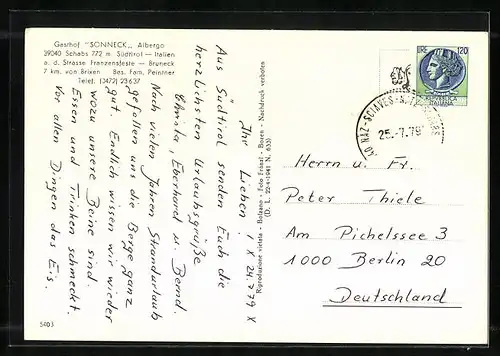 Gasthof "SONNECK" Albergo
39040 Schabs 772 m Südtirol — Italien
a. d. Strasse Franzensfeste — Bruneck
7 km. von Brixen Bes. Fam. Peintner
Telef. (0472) 23637
Ihr Lieben, ! X 24.7.79 X
Aus Südtirol senden Euch die
herzlichsten Urlaubsgrüße
Christa, Eberhard u. Bernd.
Nach vielen Jahren Strandurlaub
gefallen uns die Berge ganz
gut. Endlich wissen wir wieder
wozu unsere Beine sind.
Essen und Trinken schmeckt.
Vor allen Dingen das Eis.
5403
Riproduzione vietata - Bolzano - Foto Frissl - Bozen - Nachdruck verboten
(D. L. 22-4-1941 N. 633)
LIRE 120
REPUBBLICA ITALIANA
NAZ-SCIAVES
25.-7.79
Herrn u. Fr.
Peter Thiele
Am Pichelssee 3
1000 Berlin 20
Deutschland